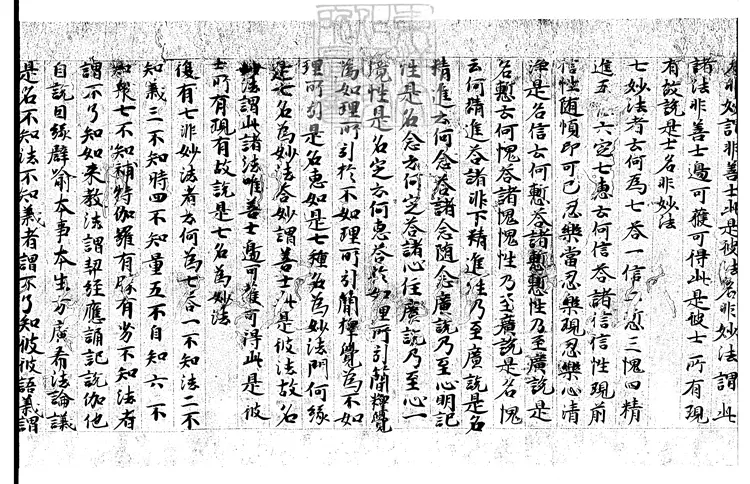 名非妙謂非善士此是彼法名非妙法謂此
諸法非善士邊可獲可得此是彼士所有現
有故說是士名非妙法
七妙法者云何為七荅一信二慙三愧四精
進五念六定七惠云何信荅諸信信性現前
信性随順印可已忍樂當忍樂現忍樂心清
淨是名信云何慙荅諸慙慙性乃至廣說是
名慙云何愧荅諸愧愧性乃至廣說是名愧
云何精進荅諸非下精進性乃至廣說是名
精進云何念荅諸念随念廣說乃至心明記
性是名念云何定荅諸心住廣說乃至心一
境性是名定云何惠荅於如理所引簡擇覺
為如理所引於不如理所引簡擇覺為不如
理所引是名惠如是七種名為妙法問何緣
是七名為妙法荅妙謂善士此是彼法故名
妙法謂此諸法唯善士邊可獲可得此是彼
士所有現有故說是七名為妙法
復有七非妙法者云何為七荅一不知法二不
知義三不知時四不知量五不自知六不
知衆七不知補特伽羅有勝有劣不知法者
謂不了知如来教法謂契經應誦記說伽他
自說因緣譬喻本事本生方廣希法論議
是名不知法不知義者謂不了知彼彼語義謂